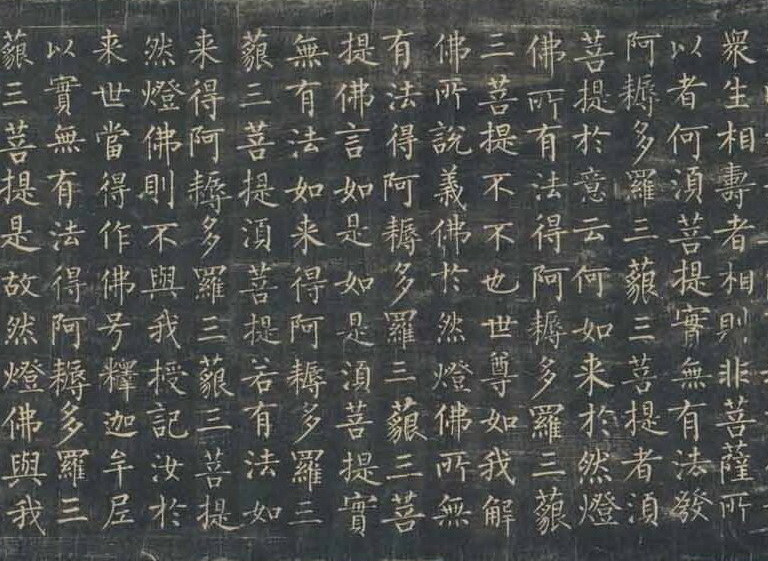 衆生相壽者相則非菩薩所
以者何須菩提實無有法發
阿耨多羅三藐三菩提者須
菩提於意云何如来於然燈
佛所有法得阿耨多羅三藐
三菩提不不也世尊如我解
佛所說義佛於然燈佛所無
有法得阿耨多羅三藐三菩
提佛言如是如是須菩提實
無有法如来得阿耨多羅三
藐三菩提須菩提若有法如
来得阿耨多羅三藐三菩提
然燈佛則不與我授記汝於
来世當得作佛号釋迦牟尼
以實無有法得阿耨多羅三
藐三菩提是故然燈佛與我